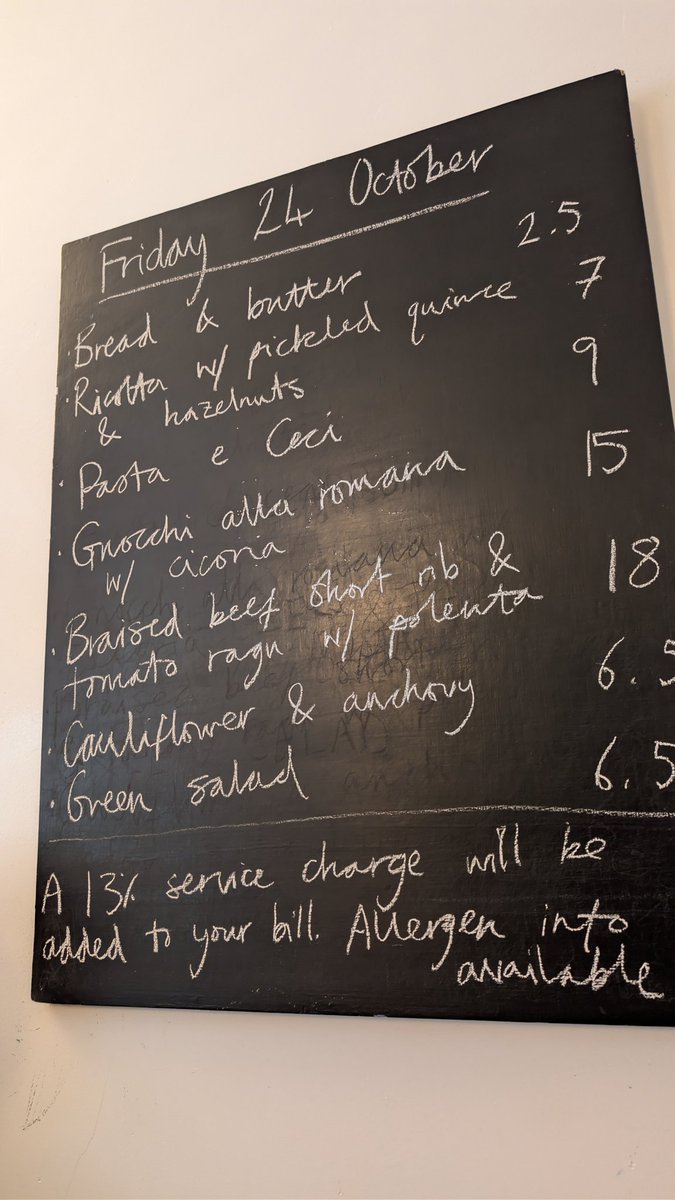 Friday 24 October
· Bread & butter 2.5
· Ricotta w/ pickled quince 7
& hazelnuts
· Pasta e Ceci 9
· Gnocchi alla romana 15
w/ cicoria
· Braised beef short rib & 18
tomato ragu w/ polenta
· Cauliflower & anchovy 6.5
· Green salad 6.5
A 13% service charge will be
added to your bill. Allergen info
available